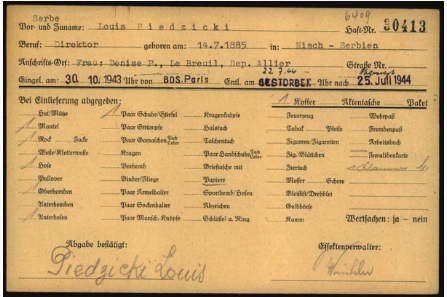 Serbe
Vor- und Zuname: Louis Piedzicki Haft-Nr. 30413
6409
Beruf: Direktor geboren am: 14.7.1885 in: Nisch - Serbien
Anschrifts-Ort: Frau: Denise P., Le Breuil, Dep. Allier Straße Nr.
Eingel. am 30. 10. 1943 Uhr von BDS. Paris Entl. am GESTORBEN Uhr nach 25. Juli 1944
22.7.44
Bei Einlieferung abgegeben: 1 Koffer Aktentasche Paket
Hut/Mütze 1 Paar Schuhe/Stiefel Kragenknöpfe Feuerzeug Wehrpaß
1 Mantel Paar Strümpfe Halstuch Tabak Pfeife Fremdenpaß
1 Rock Jacke Paar Gamaschen Tuch Leder Taschentuch Zigarren/Zigaretten Arbeitsbuch
Weste/Kletterweste Kragen Paar Handschuhe Tuch Leder Zig.-Blättchen Invalidenkarte
1 Hose Vorhemd Brieftasche mit Feuerzeug
Pullover Binder/Fliege Papiere Messer Scheere
Oberhemden Paar Ärmelhalter Sportbend/Hosen Bleistift/Drehblei
Unterhemden Paar Sockenhalter Abzeichen Geldbörse
Unterhosen Paar Mansch.-Knöpfe Schlüssel a. Ring Kamm Wertsachen: ja - nein
Abgabe bestätigt: Effektenverwalter:
Piedzicki Louis